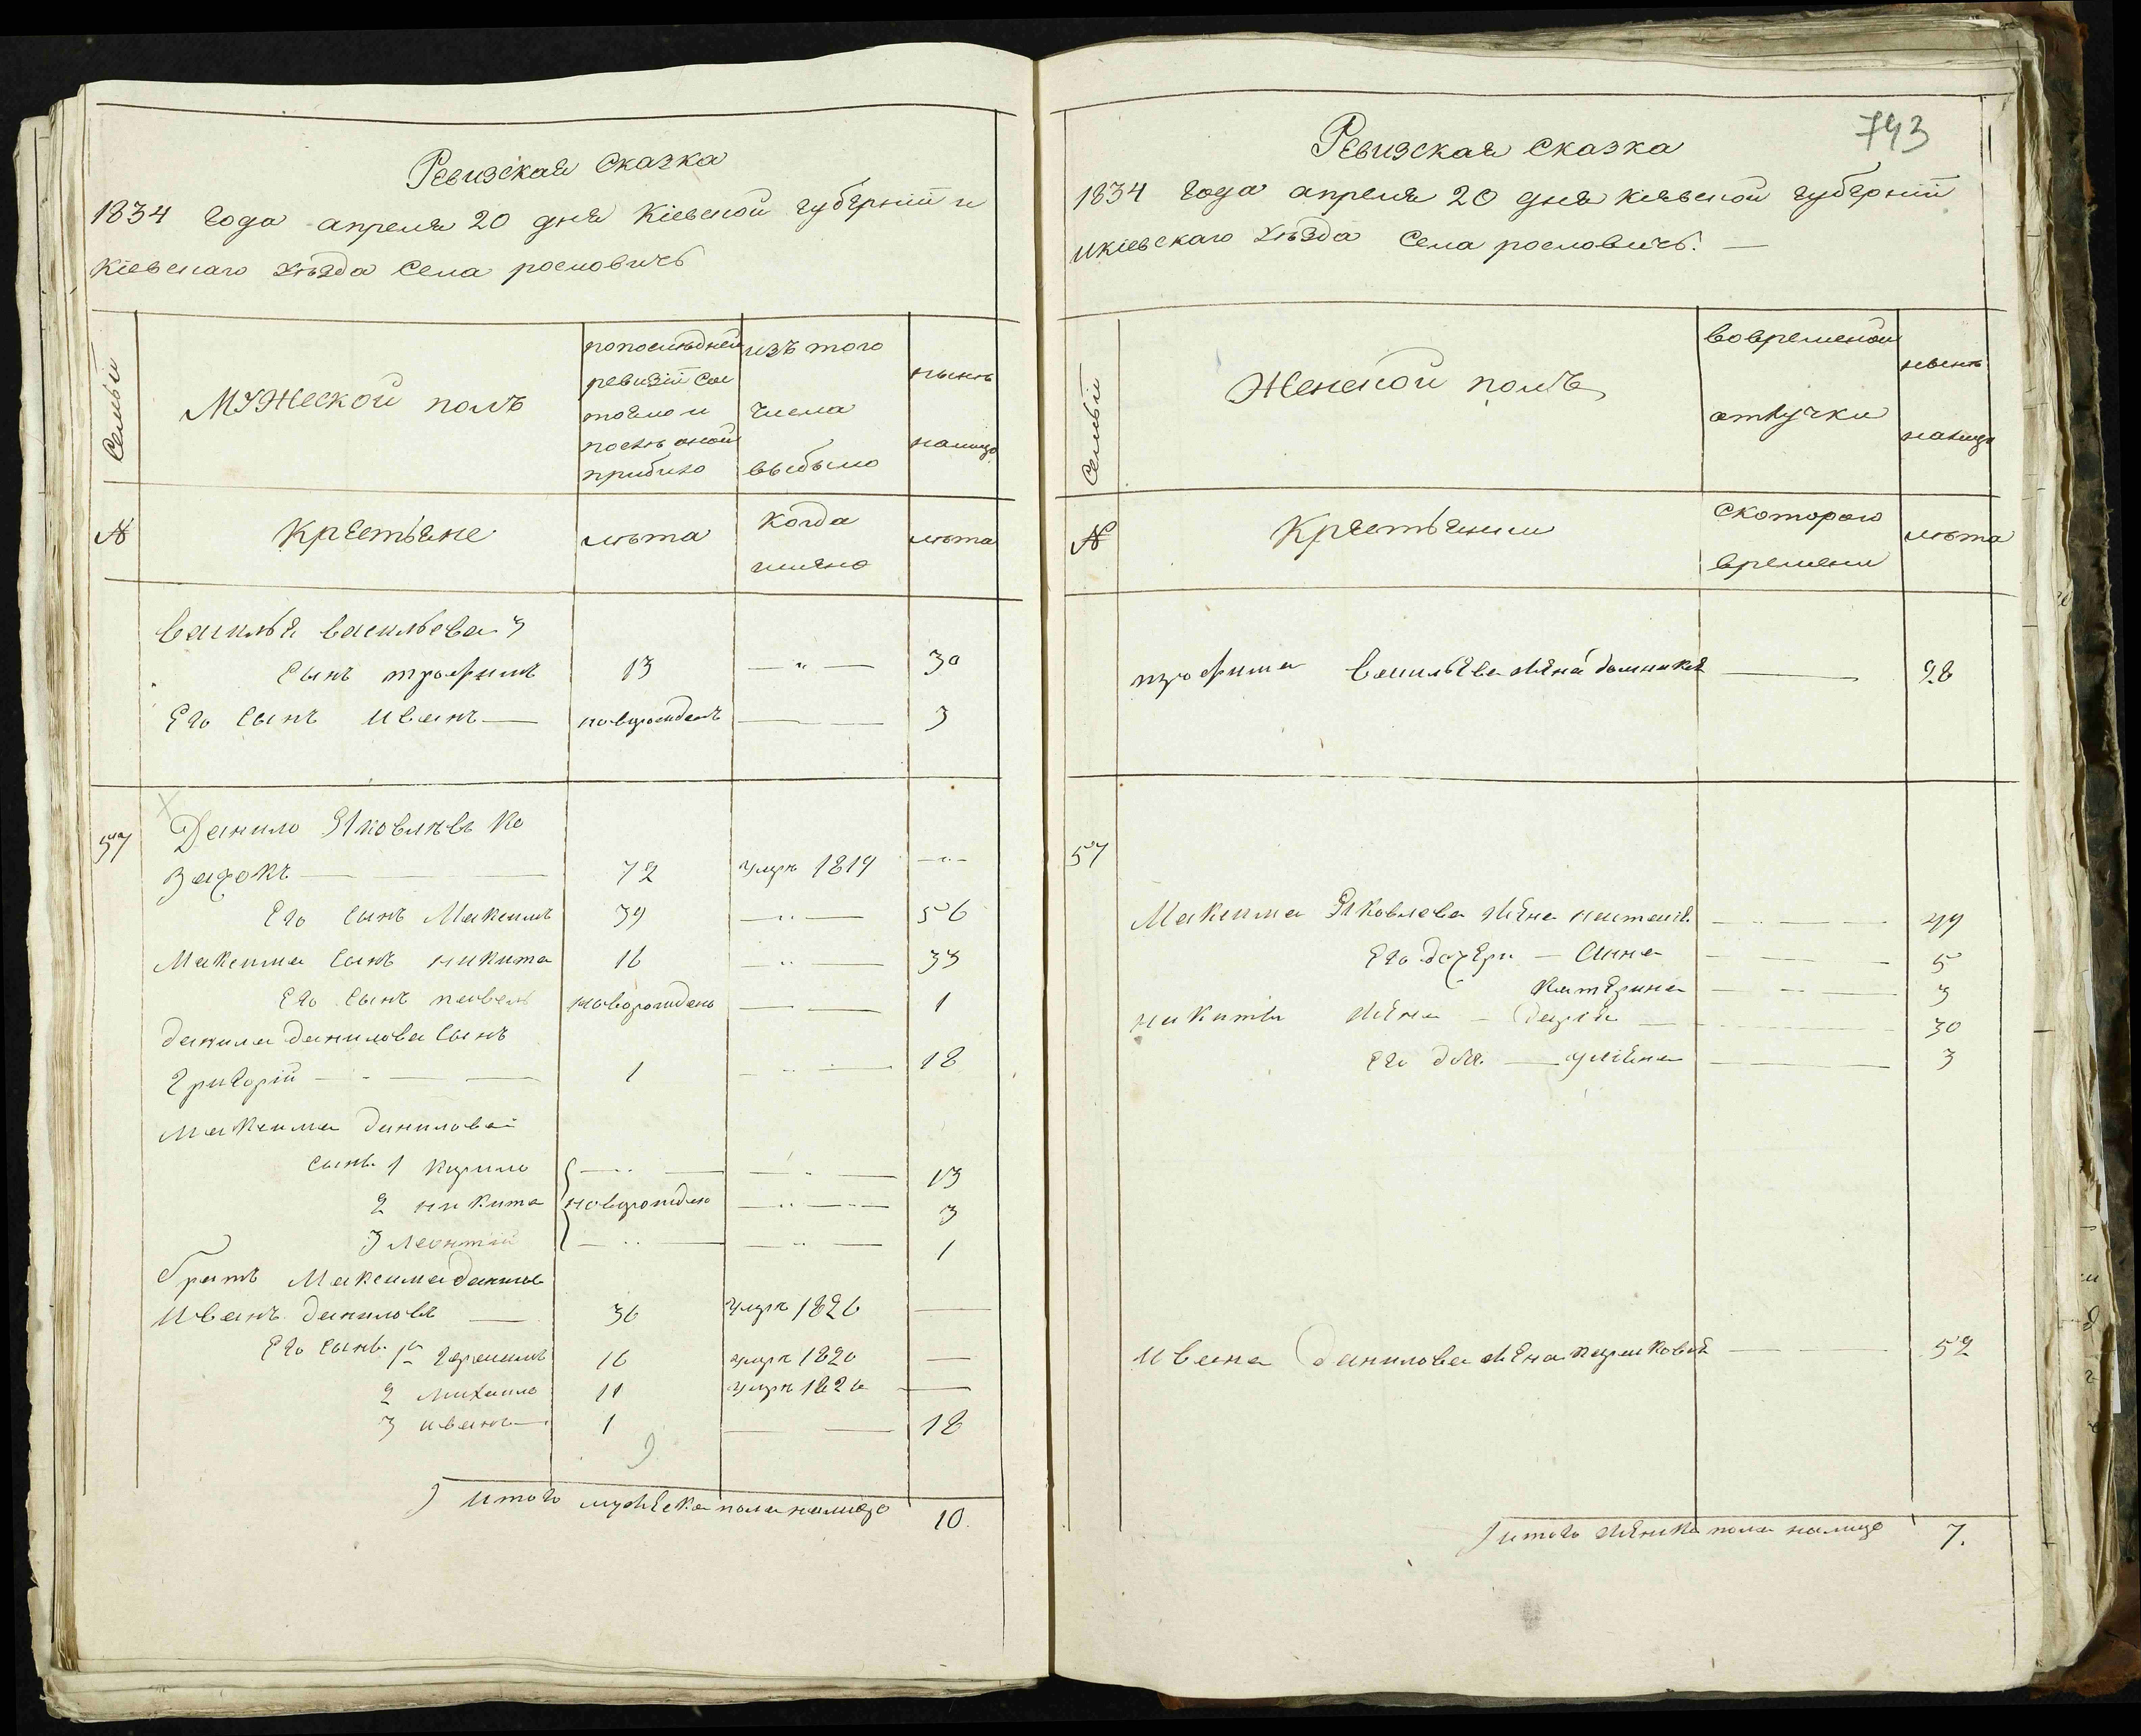 Ревизская сказка
1834 года апреля 20 дня Кіевской губерніи и
Кіевскаго уѣзда Села рословичъ
Семьи
Мужеской полъ
попоследней
ревизіи сос
тояло и
послѣ оной
прибыло
изъ того
числа
выбыло
нынѣ
налицо
№
Крестьяне
лѣта
когда
имяно
лѣта
Василья васильева 3
сынъ трофимъ 13 — " — 30
Его сынъ Иванъ — новорожденъ — — 3
57 Данило Яковлевъ Ко
— — 72 умръ 1819 — " —
Его сынъ Максимъ 39 — " — 56
Максима сынъ никита 16 " — 33
Его сынъ павелъ новорожденъ — — 1
данила данилова сынъ
Григорій — — — 1 — " — 18
Максима данилова
сынъ 1 кирило — " — — " — 13
2 никита новорожден — " — 3
3 Леонтій — " — — " — 1
братъ Максима данилов
Иванъ даниловъ — 36 умръ 1826 —
Его сынъ 1й Герасимъ 16 умръ 1820 —
2 михаило 11 умръ 1826 —
3 иванъ — 1 — — 18
9
итого мужеска пола налицо 10.
743
Ревизская сказка
1834 года апреля 20 дня кіевской губерніи
икіевскаго уѣзда Села рословичъ. —
Семьи
Женской полъ
вовременой
отлучки
нынѣ
налицо
№
Крестьянки
скотораго
времени
лѣта
трофима Васильева жена домникія — 28
57
Максима Яковлева жена — 49
Его дочери — Анна — 5
Катерина — 3
никиты жена — Дарія — 30
Его доч. — уліяна — 3
Ивана данилова жена — 52
итого женска пола налицо 7.